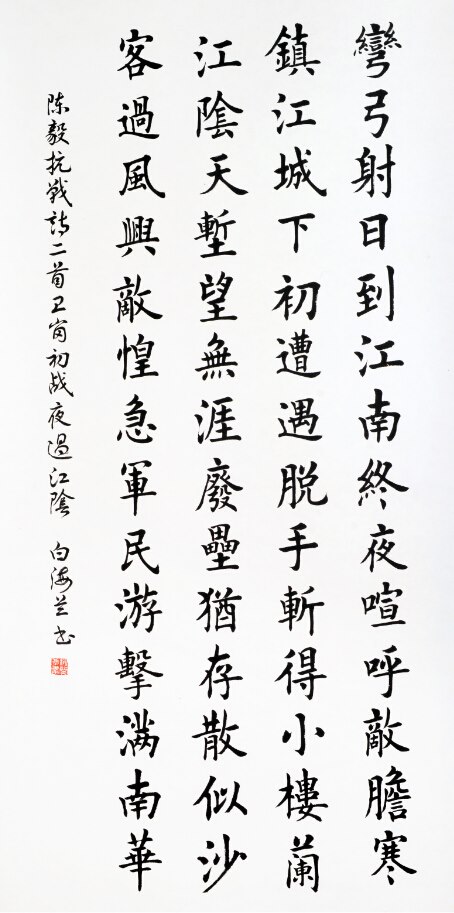 彎弓射日到江南終夜喧呼敵膽寒
鎮江城下初遭遇脱手斬得小樓蘭
江陰天塹望無涯廢壘猶存散似沙
客過風興敵惶急軍民游擊滿南華
陈毅抗戰詩二首卫岗初战夜過江陰 白海兰书